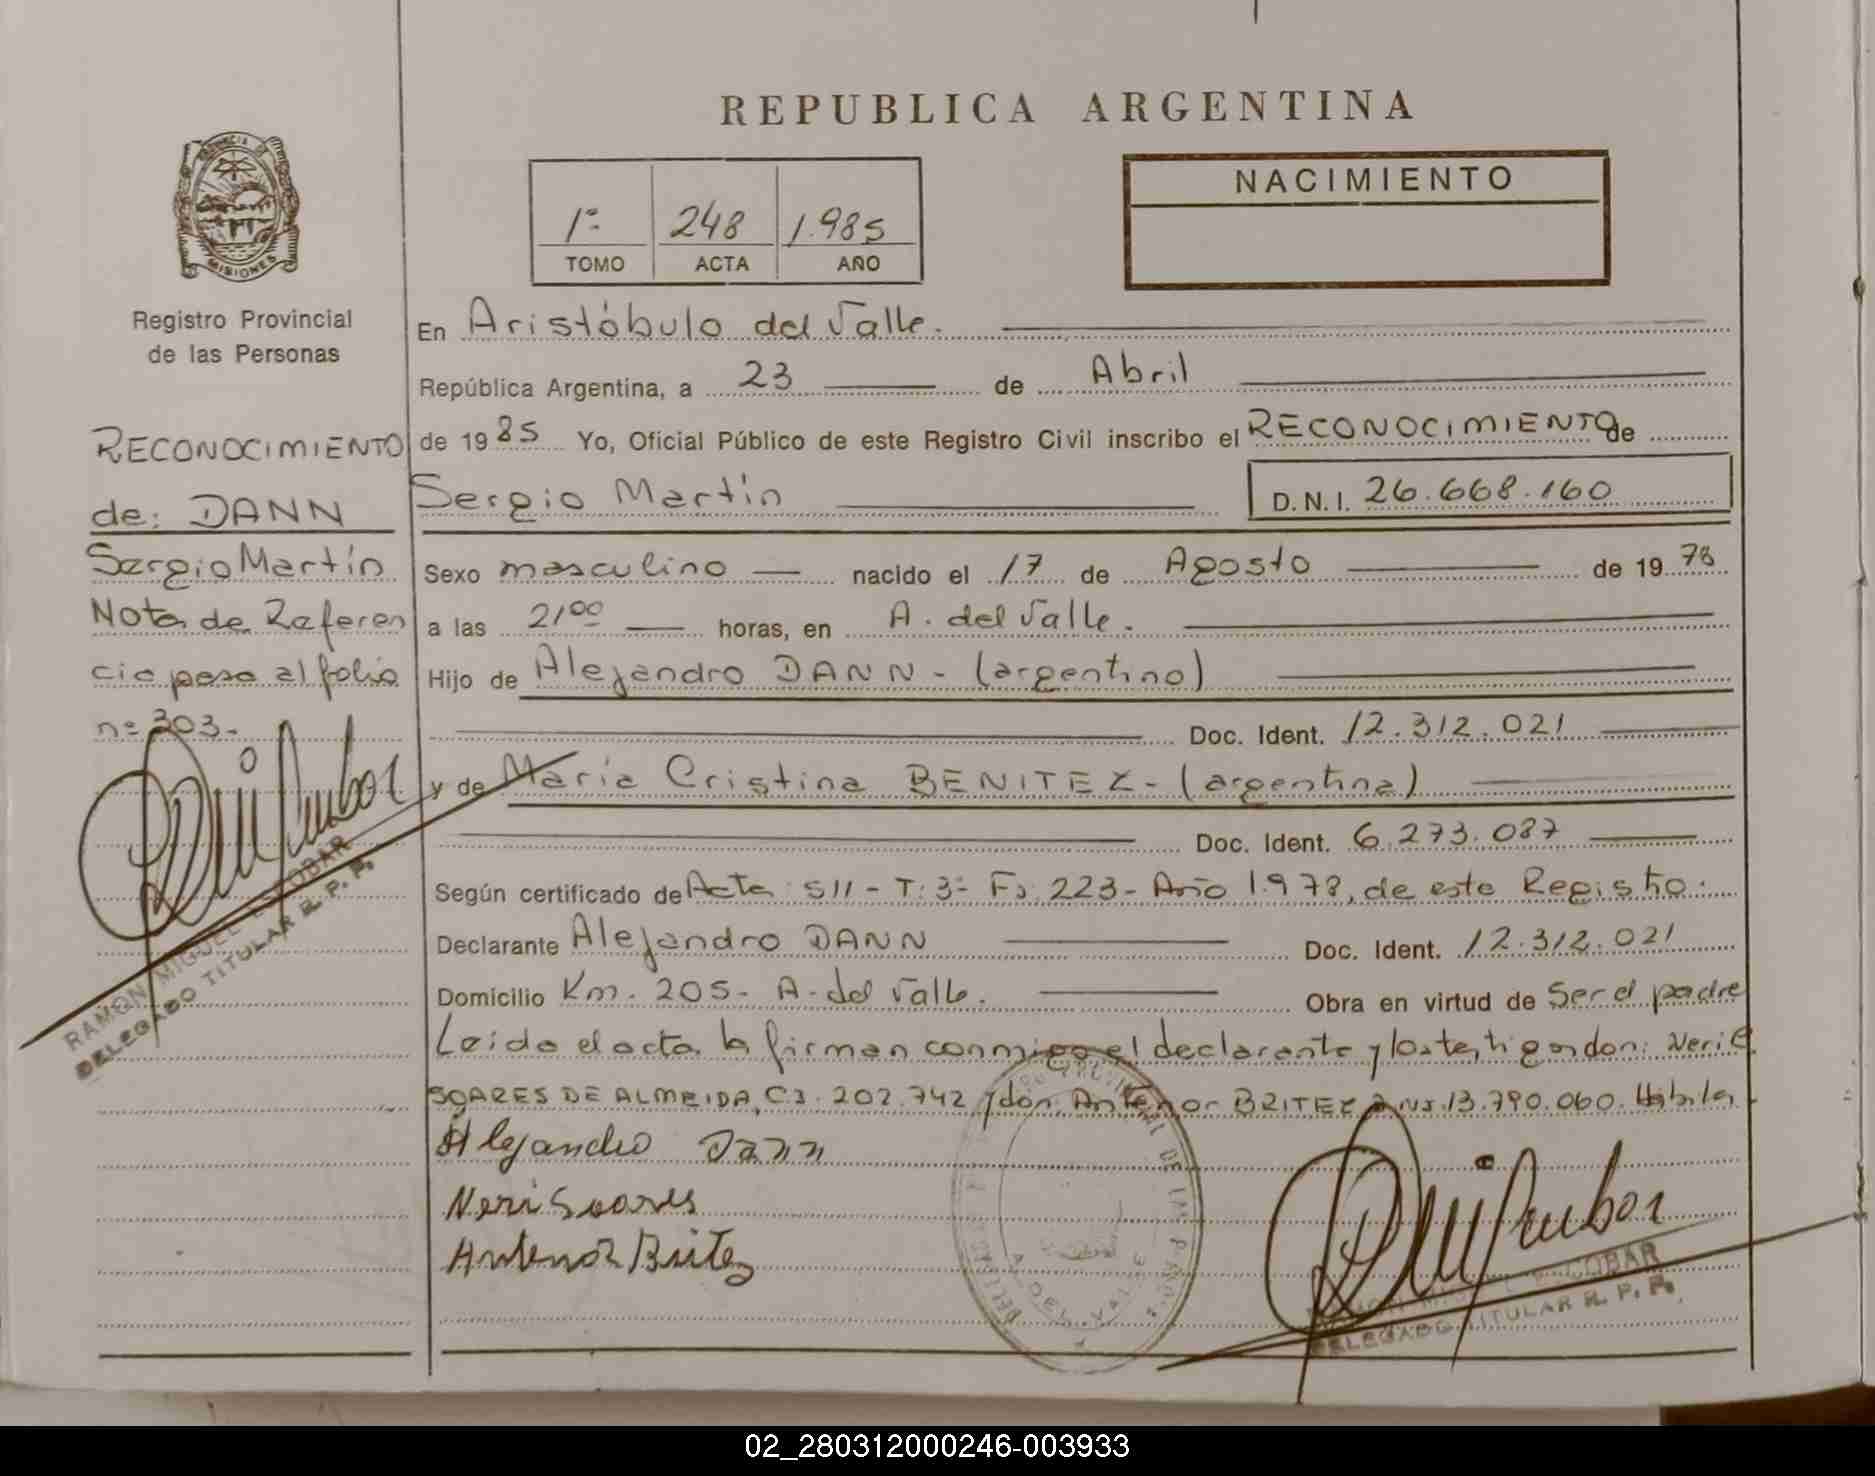 REPUBLICA ARGENTINA
PROVINCIA DE
MISIONES
Registro Provincial
de las Personas
1º 248 1.985
TOMO ACTA AÑO
NACIMIENTO
RECONOCIMIENTO
de: DANN
Sergio Martín
Nota de Referen
cia pasa al folio
nº 303.
RAMON MIGUEL ESCOBAR
DELEGADO TITULAR R. P. P.
En Aristóbulo del Valle.
República Argentina, a 23 de Abril
de 1985 Yo, Oficial Público de este Registro Civil inscribo el RECONOCIMIENTO de
Sergio Martín D.N.I. 26.668.160
Sexo masculino nacido el 17 de Agosto de 1978
a las 21 00 horas, en A. del Valle.
Hijo de Alejandro DANN - (argentino)
Doc. Ident. 12.312.021
y de María Cristina BENITEZ - (argentina)
Doc. Ident. 6.273.087
Según certificado de Acta: 511 - T: 3º Fº: 223 - Año 1.978, de este Registro.
Declarante Alejandro DANN Doc. Ident. 12.312.021
Domicilio Km. 205 - A. del Valle. Obra en virtud de Ser el padre
Leída el acta la firman conmigo el declarante y los testigos don: Neri
SOARES DE ALMEIDA, CI. 202.742 y don Antenor BRITEZ D.NI. 13.790.060. Hábiles
Alejandro Dann
Neri Soares
Antenor Britez
RAMON MIGUEL ESCOBAR
DELEGADO TITULAR R. P. P.
02_280312000246-003933